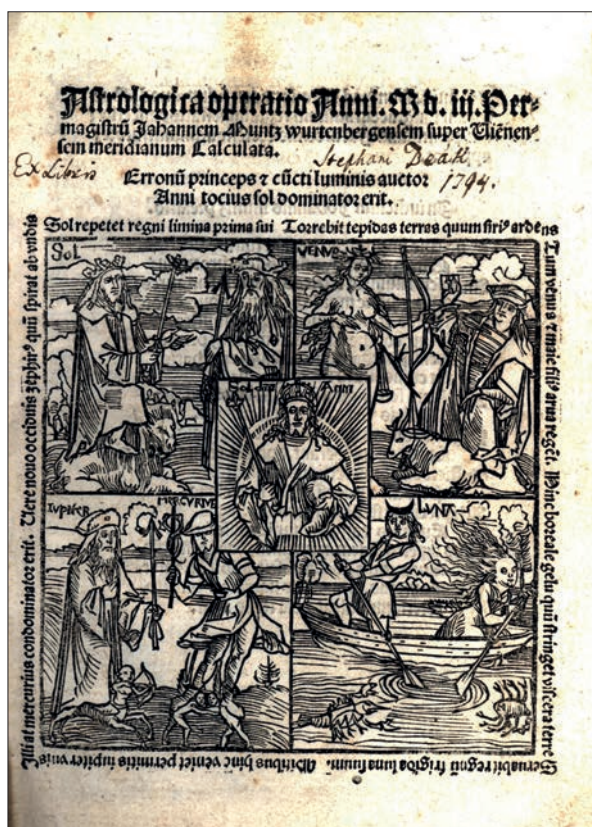 Astrologica operatio Anni. M d. iii. Per-
magistrū Jahannem Muntz wurtenbergensem super Uiēnen-
sem meridianum Calculata.
Ex Libris Stephani 1794.
Erronū princeps ⁊ cūcti luminis auctor
Anni tocius sol dominator erit.
Sol repetet regni limina prima sui Torrebit tepidas terras quum siriꝰ ardens
Tum venus ⁊ maie filiꝰ arua reget. Hinc boreale gelu quū stringet viscera terre
Seruabit regnū frigida luna suum. hinc veniet permitis iupiter
Illi at mercurius condominator erit. Uere nouo occiduis zephirꝰ quū spirat ab vndis
Sol
VENVS
Sol Anni
IVPITER
MERCVRIVS
LVNA